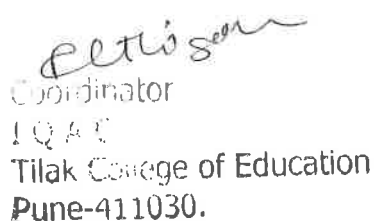 Coordinator
I Q A C
Tilak College of Education
Pune-411030.